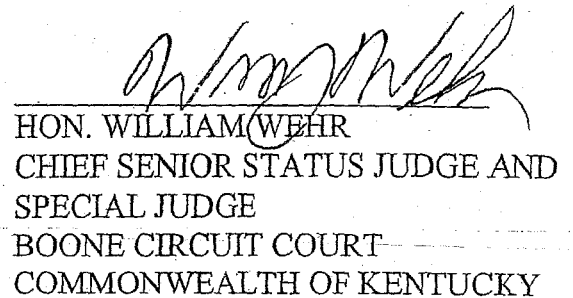 HON. WILLIAM WEHR
CHIEF SENIOR STATUS JUDGE AND
SPECIAL JUDGE
BOONE CIRCUIT COURT
COMMONWEALTH OF KENTUCKY